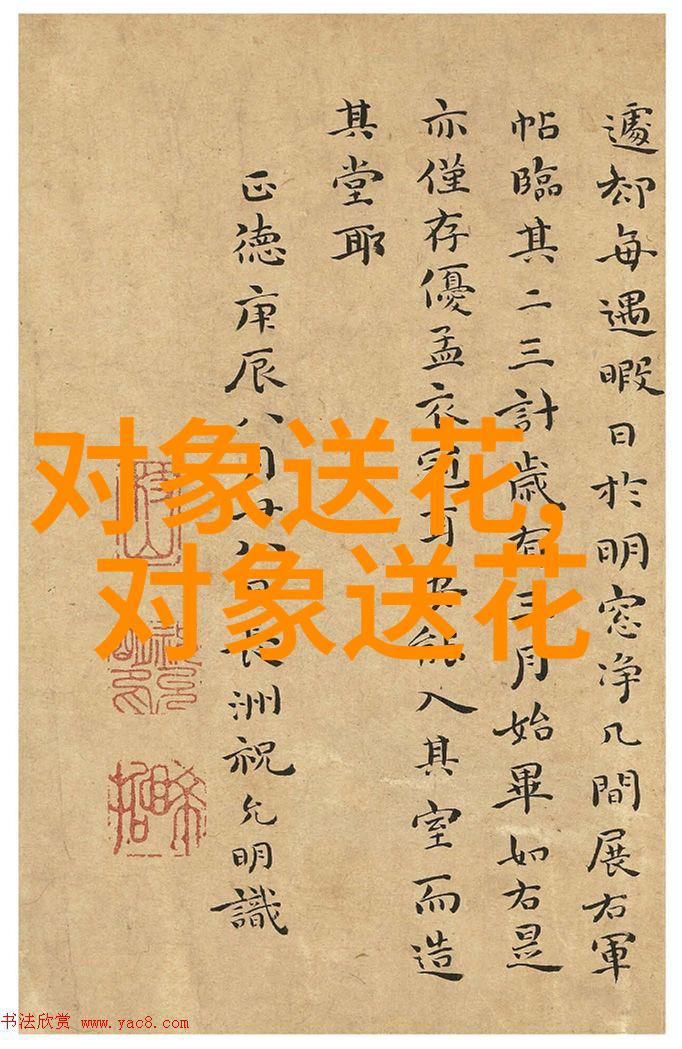 遽却每遇暇日於明窓净几間展右軍
帖臨其二三計歲有三月始畢如右是
亦僅存優孟衣冠耳能入其室而造
其堂耶
正德庚辰八月廿八日長洲祝允明識
对象送花,
对象送花
书法欣赏 www.yac8.com